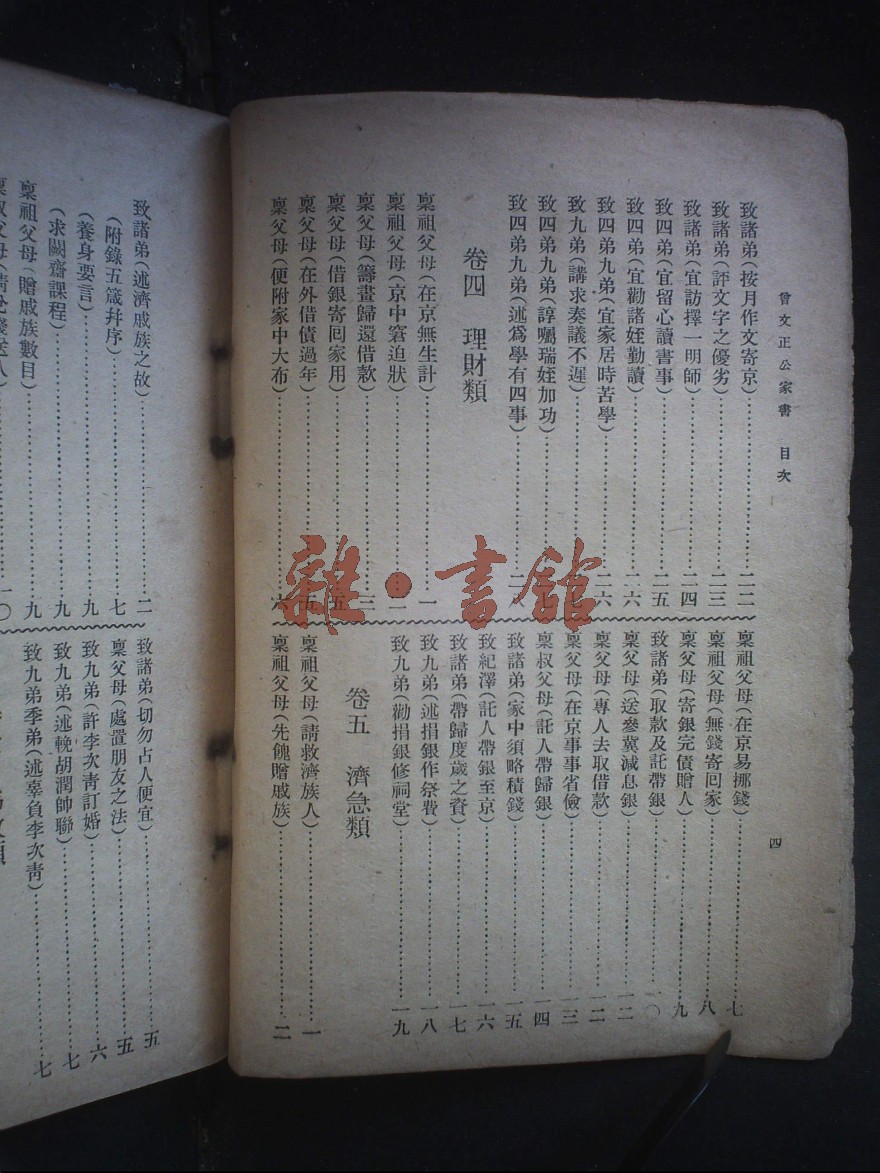 曾文正公家書　目次
四
致諸弟(按月作文寄京)……二二
致諸弟(評文字之優劣)……二三
致諸弟(宜訪擇一明師)……二四
致四弟(宜留心讀書事)……二五
致四弟(宜勸諸姪勤讀)……二六
致四弟九弟(宜家居時苦學)……二六
致九弟(講求奏議不遲)
致四弟九弟(諄囑瑞姪加功)
致四弟九弟(述爲學有四事)……二八
卷四　理財類
稟祖父母(在京無生計)……一
稟祖父母(京中窘迫狀)
稟父母(籌畫歸還借款)……三
稟父母(借銀寄回家用)……五
稟父母(在外借債過年)……五
稟父母(便附家中大布)……六
稟祖父母(在京易挪錢)……七
稟祖父母(無錢寄回家)……八
稟父母(寄銀完債贈人)……九
致諸弟(取款及託帶銀)……一〇
稟父母(送參冀減息銀)……一二
稟父母(專人去取借款)……一二
稟父母(在京事事省儉)……一三
稟叔父母(託人帶歸銀)……一四
致諸弟(家中須略積錢)……一五
致紀澤(託人帶銀至京)……一六
致諸弟(帶歸度歲之資)……一七
致九弟(述捐銀作祭費)……一八
致九弟(勸捐銀修祠堂)……一九
卷五　濟急類
稟祖父母(請救濟族人)……一
稟祖父母(先餽贈戚族)……二
致諸弟(述濟戚族之故)……二
(附錄五箴幷序)……七
(養身要言)……九
(求闕齋課程)……九
稟祖父母(贈戚族數目)……九
一〇
致諸弟(切勿占人便宜)……五
稟父母(處置朋友之法)……五
致九弟(許李次靑訂婚)……六
致九弟(述輓胡潤帥聯)……七
致九弟季弟(述辜負李次靑)……七
雜·書館